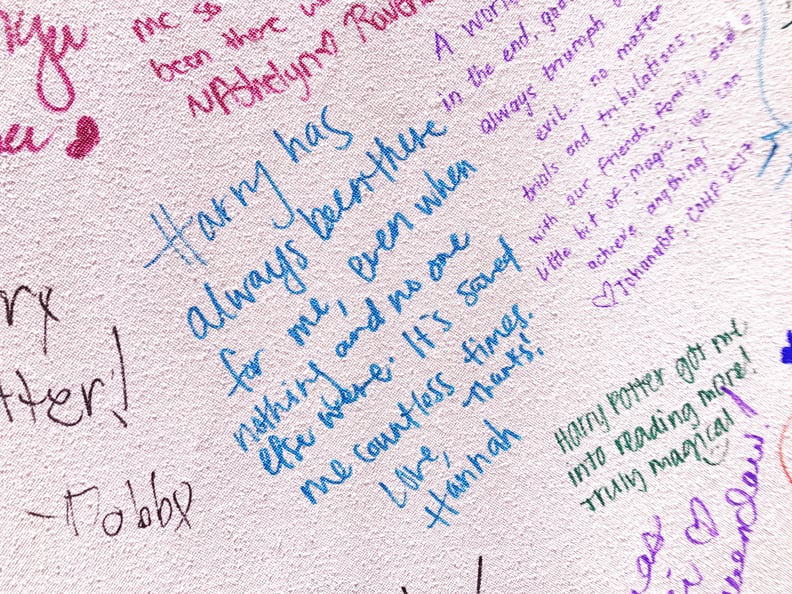 me so
been there
NAshelyn
A world
in the end, good
always triumph
evil... no matter
trials and tribulations,
with our friends, family, and a
little bit of magic, we can
achieve anything!
Harry has
always been there
for me, even when
nothing and no one
else were. It's saved
me countless times.
Thanks!
Love,
Hannah
Harry Potter got me
into reading more!
Truly magical
tter!
-Dobby